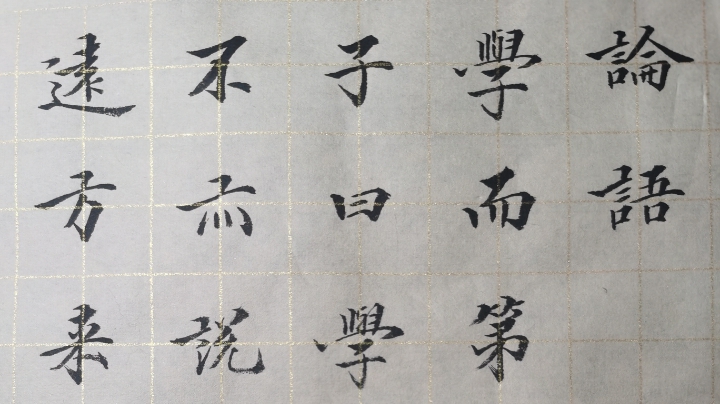 論語
學而第
子曰學
不亦説
遠方来